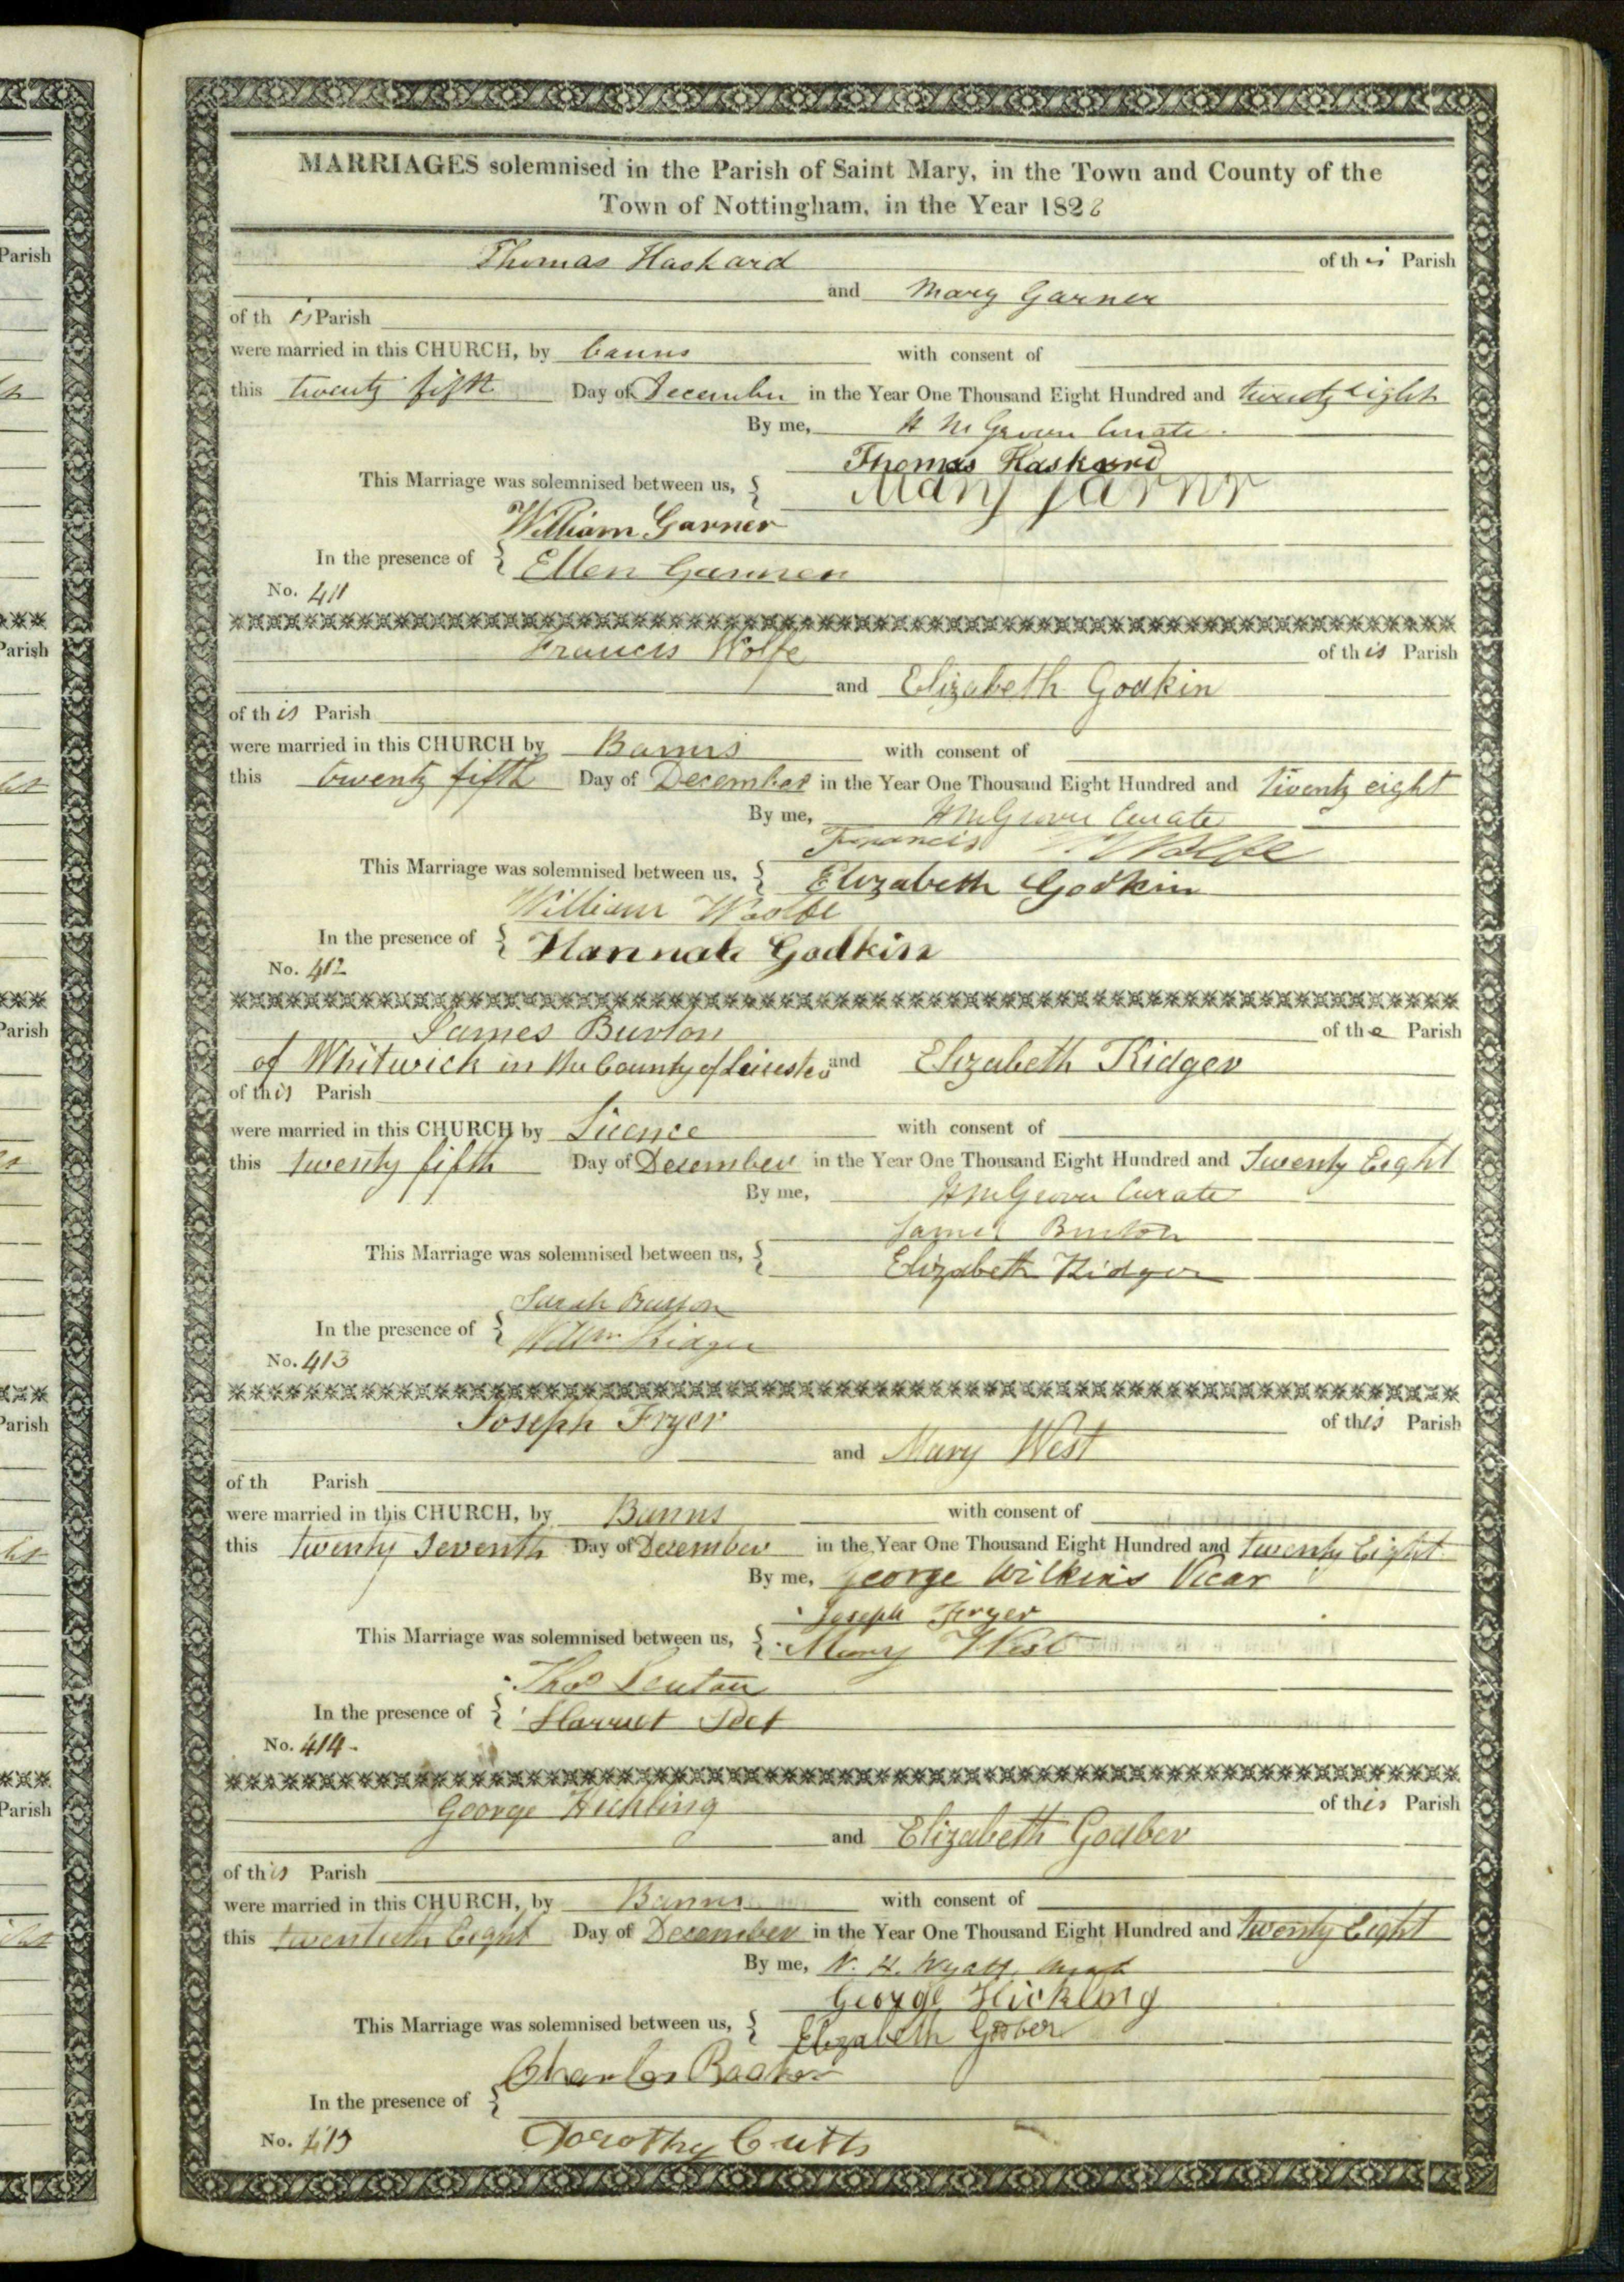 MARRIAGES solemnised in the Parish of Saint Mary, in the Town and County of the
Town of Nottingham, in the Year 1828
Thomas Haskard of this Parish
and Mary Garner
of this Parish
were married in this CHURCH, by banns with consent of
this twenty fifth Day of December in the Year One Thousand Eight Hundred and twenty eight
By me, Curate
Thomas Haskard
This Marriage was solemnised between us, { Mary Garnr
William Garner
In the presence of { Ellen Garner
No. 411
Francis Wolfe of this Parish
and Elizabeth Godkin
of this Parish
were married in this CHURCH by Banns with consent of
this twenty fifth Day of December in the Year One Thousand Eight Hundred and Twenty eight
By me, Curate
Francis Woolfe
This Marriage was solemnised between us, { Elizabeth Godkin
William Woolfe
In the presence of { Hannah Godkin
No. 412
James Burton of the Parish
of Whitwick in the County of Leicester and Elizabeth Kidger
of this Parish
were married in this CHURCH by Licence with consent of
this twenty fifth Day of December in the Year One Thousand Eight Hundred and Twenty Eight
By me, Curate
James Burton
This Marriage was solemnised between us, { Elizabeth Kidger
Sarah Burton
In the presence of { Willm Kidger
No. 413
Joseph Fryer of this Parish
and Mary West
of th Parish
were married in this CHURCH, by Banns with consent of
this twenty Seventh Day of December in the Year One Thousand Eight Hundred and twenty Eight
By me, George Wilkins Vicar
Joseph Fryer
This Marriage was solemnised between us, { Mary West
Thos
In the presence of { Harriet
No. 414
George Hickling of this Parish
and Elizabeth Goaber
of this Parish
were married in this CHURCH, by Banns with consent of
this twentieth Eight Day of December in the Year One Thousand Eight Hundred and twenty Eight
By me, Wyatt
George Hickling
This Marriage was solemnised between us, { Elizabeth Goober
Charles
In the presence of {
No. 415 Dorothy Cutts
Parish
Parish
Parish
Parish
Parish